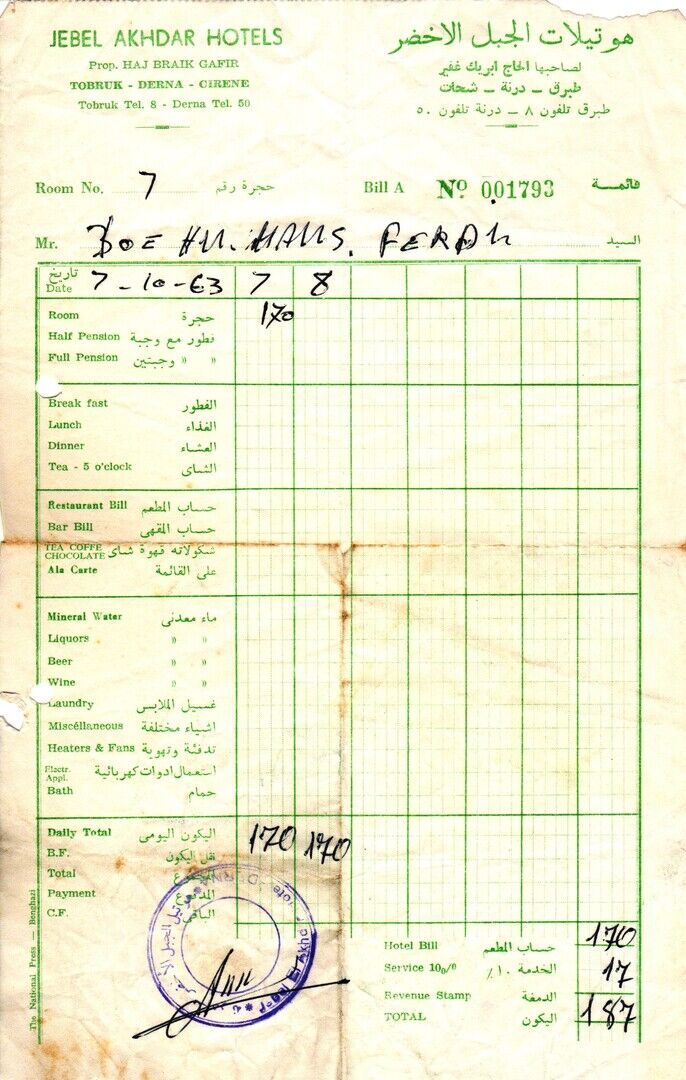 JEBEL AKHDAR HOTELS
Prop. HAJ BRAIK GAFIR
TOBRUK - DERNA - CIRENE
Tobruk Tel. 8 - Derna Tel. 50
هوتيلات الجبل الاخضر
لصاحبها الحاج ابريك غفير
طبرق - درنة - شحات
طبرق تلفون ٨ - درنة تلفون ٥٠
Room No. 7 حجرة رقم Bill A Nº 001793 قائمـة
Mr. السيد
تاريخ
Date 7-10-63 7 8
Room حجرة 170
Half Pension فطور مع وجبة
Full Pension » » وجبتين
Break fast الفطور
Lunch الغذاء
Dinner العشاء
Tea - 5 o'clock الشاى
Restaurant Bill حساب المطعم
Bar Bill حساب المقهى
TEA COFFE CHOCOLATE شكولاته قهوة شاى
Ala Carte على القائمة
Mineral Water ماء معدنى
Liquors » »
Beer » »
Wine » »
Laundry غسيل الملابس
Miscéllaneous اشياء مختلفة
Heaters & Fans تدفئة وتهوية
Electr. Appl. استعمال ادوات كهربائية
Bath حمام
Daily Total اليكون اليومى 170 170
B.F. نقل اليكون
Total المجموع
Payment المدفوع
C.F. الباقى
Hotel Bill حساب المطعم 170
Service 10% الخدمة ١٠٪ 17
Revenue Stamp الدمغة
TOTAL اليكون 187
The National Press — Benghazi